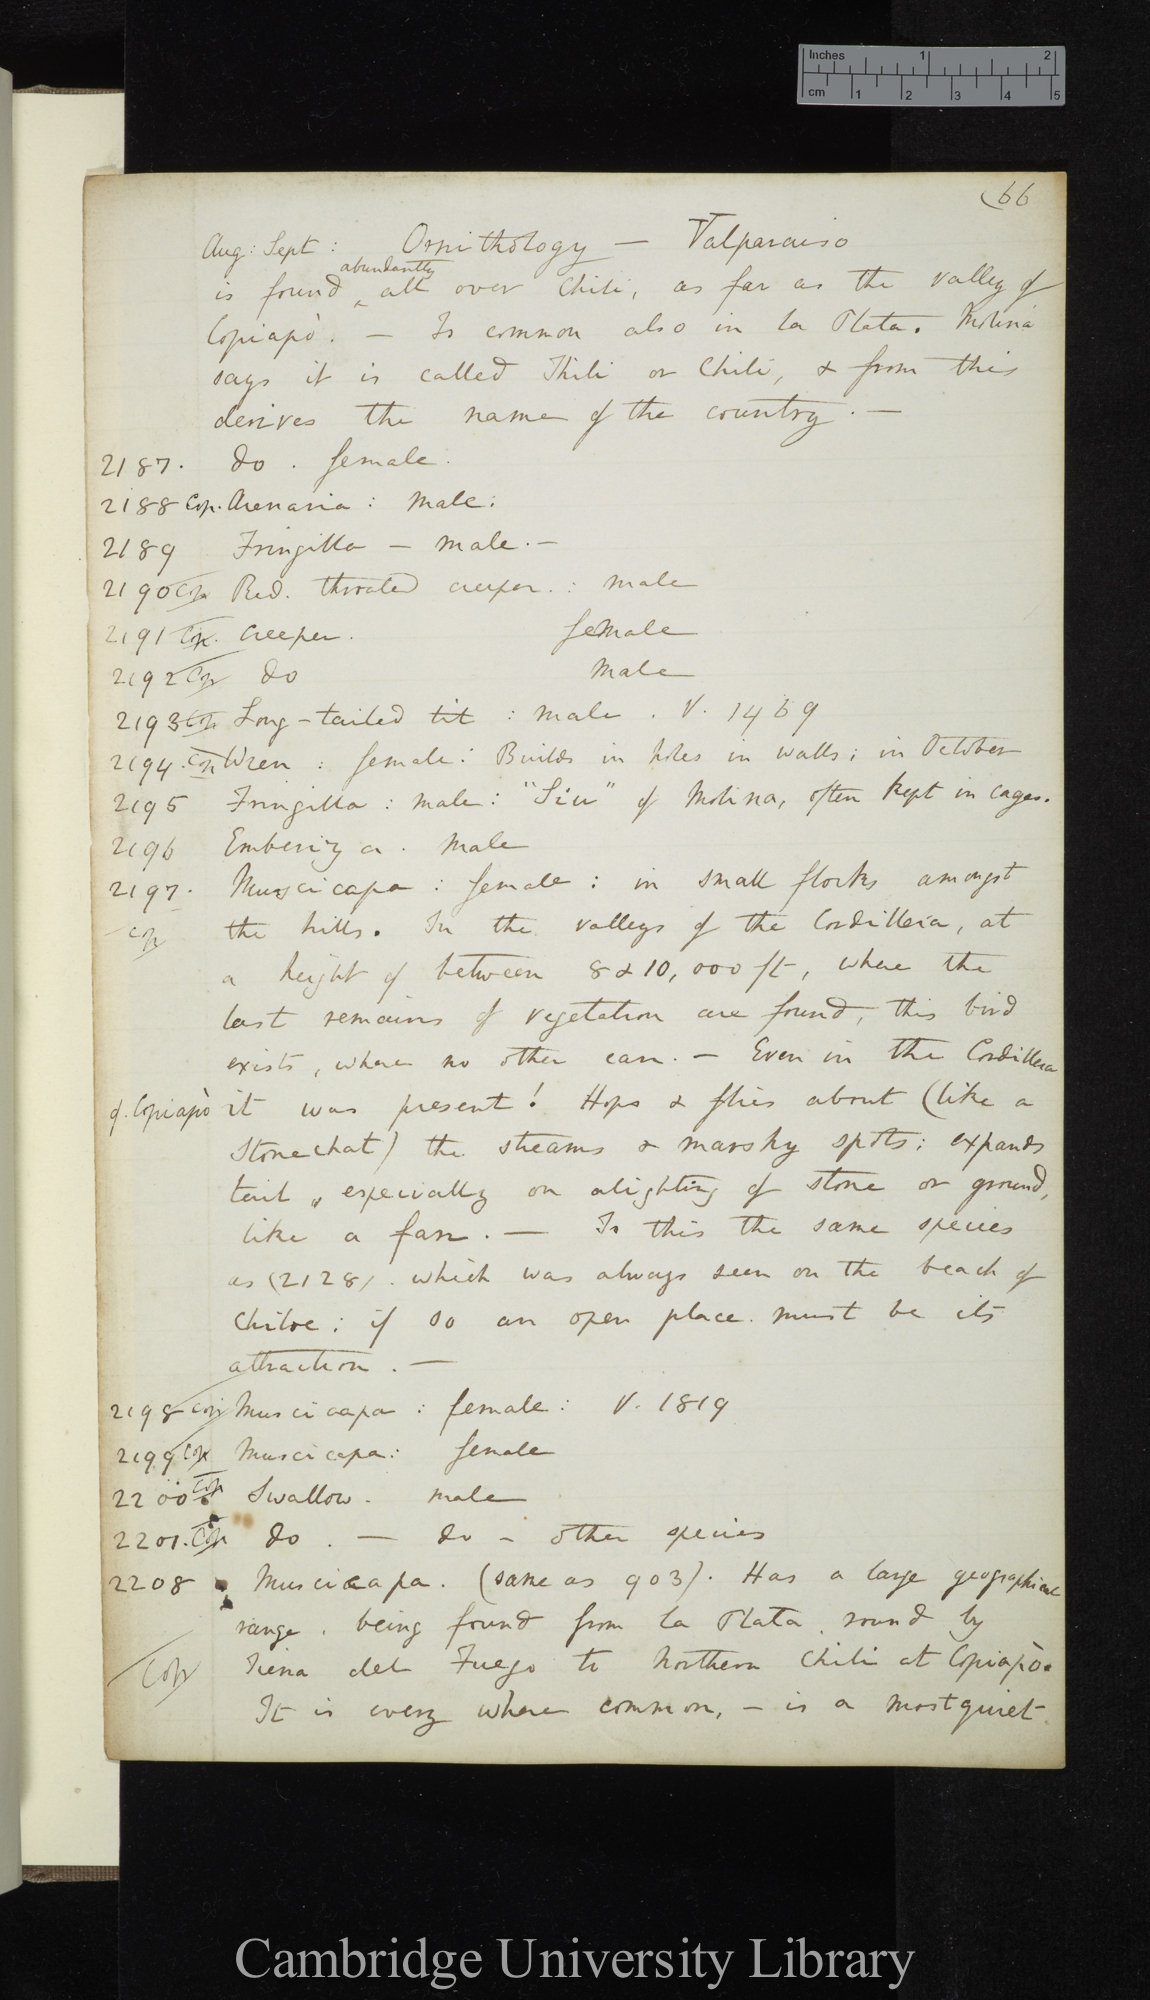 Inches 1 2
cm 1 2 3 4 5
(66
Aug: Sept: Ornithology — Valparaiso
abundantly
is found ^ all over Chili, as far as the valley of
Copiapò. — Is common also in la Plata. Molina
says it is called Thili or Chili, & from this
derives the name of the country. —
2187. do. female.
2188 Cop. Arenaria: male:
2189 Fringilla — male. —
2190 Cop Red. throated creeper.: male
2191 Cop. Creeper. female
2192 Cop do male
2193 Cop Long-tailed tit: male. V. 1469
2194. Cop Wren: female: Builds in holes in walls; in October
2195 Fringilla: male: "Siu" of Molina, often kept in cages.
2196 Emberiza. male
2197. Muscicapa: female: in small flocks amongst
Cop the hills. In the valleys of the Cordillera, at
a height of between 8 & 10,000 ft, where the
last remains of vegetation are found, this bird
exists, where no other can. — Even in the Cordillera
of. Copiapò it was present! Hops & flies about (like a
Stonechat) the streams & marshy spots; expands
tail, especially on alighting of stone or ground,
like a fan. — Is this the same species
as (2128). which was always seen on the beach of
Chiloe; if so an open place must be its
attraction. —
2198 Cop Muscicapa: female: V. 1819
2199 Cop Muscicapa: female
2200 Cop Swallow. male
2201. Cop do. — do - other species
2208 Muscicapa. (same as 903). Has a large geographical
range, being found from la Plata, round by
Cop Tierra del Fuego to Northern Chili at Copiapò.
It is every where common, — is a most quiet
Cambridge University Library